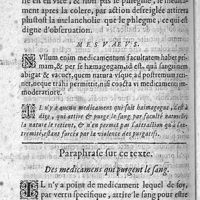 lement après la colere, par action desreiglee attirera
plustost la melancholie que le phlegme, ce qui est
digne d'obseruation.
MESVAEVS.
NVllum enim medicamentum facultatem habet pri-
mam, & per se hæmagogam, id est, quâ sanguinem
abigat & vacuet, quem natura vsque ad postremum reti-
net, neque trahi permittit, nisi ob medicamenti vehemen-
tiam.
Il n'y a aucun medicament qui soit hæmagogue, c'est à
dire, qui attire & purge le sang par faculté naturelle,
la nature le retient, & n'en permet pas l'attraction qu'à l'ex-
tremité, estant forcée par la violence des purgatifs.
Paraphrase sur ce texte.
Des medicamens qui purgent le sang.
IL n'y a point de medicament lequel de soy,
par vertu specifique, attire le sang pour este